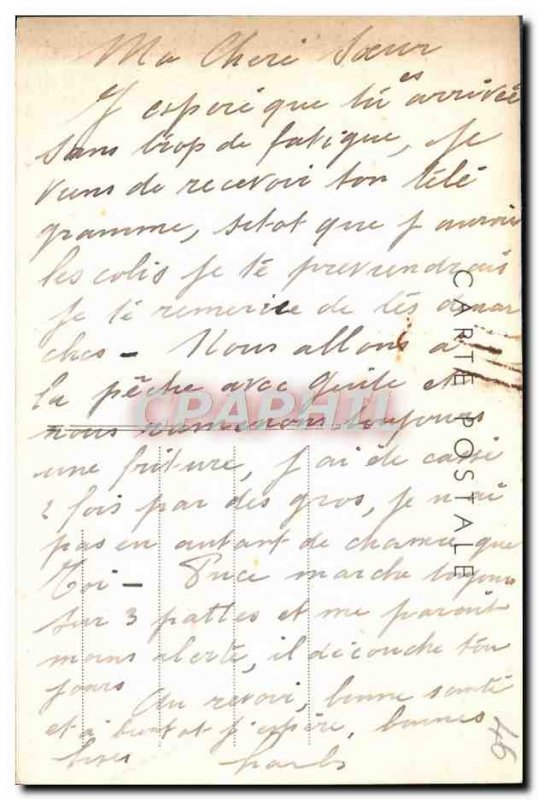 Ma Cheri Sœur
J esperé que tu es arrivée
sans trop de fatigue, Je
viens de recevoir ton télé
gramme, sitot que j aurai
les colis je te previendrais
Je te remercie de tés démar
ches - Nous allons à
la pêche avec et
nous ramenons toujours
une friture, j ai été cassé
2 fois par des gros, je n ai
pas eu autant de chance que
Toi - Puce marche toujours
sur 3 pattes et me parait
moins alerte, il découche tou
jours
Au revoir, bonne santé
et à bientot j'espère, bonnes
bises
CARTE POSTALE
CPAPHIL
46